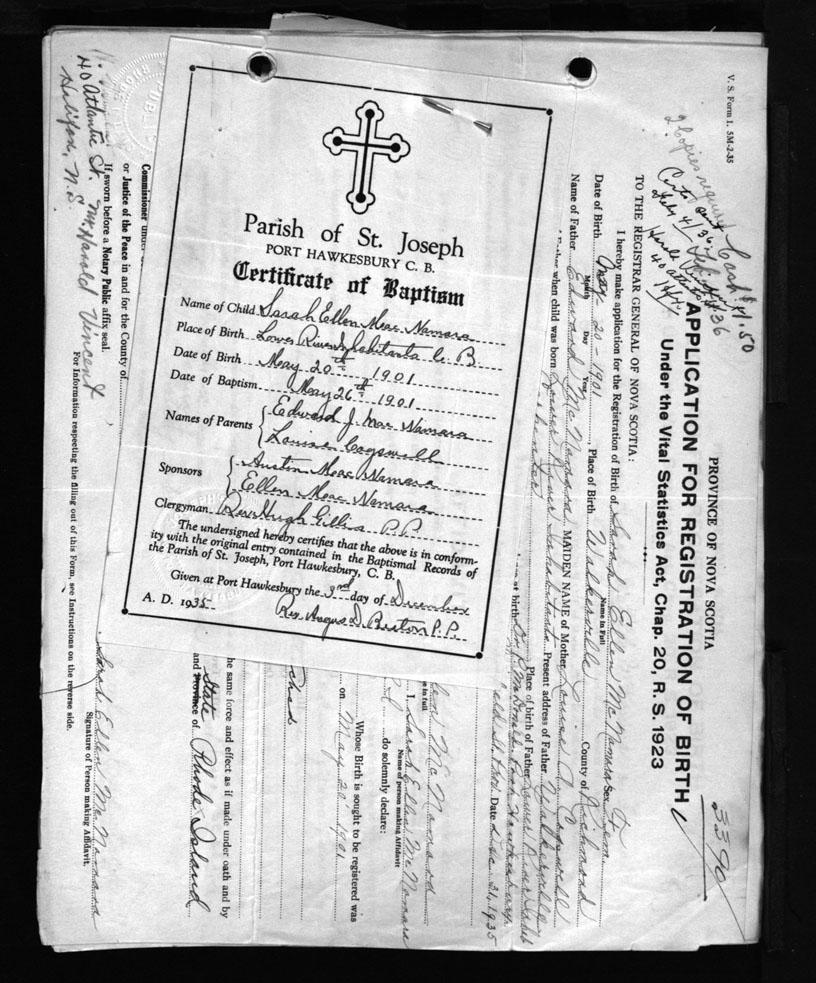 Parish of St. Joseph
PORT HAWKESBURY C. B.
Certificate of Baptism
Name of Child Sarah Ellen Mac Namara
Place of Birth Lower River Inhabitants C. B.
Date of Birth May 20th 1901
Date of Baptism May 26th 1901
Names of Parents Edward J. Mac Namara
Louise Cogswell
Sponsors Austin Mac Namara
Ellen Mac Namara
Clergyman Rev Hugh Gillis P. P.
The undersigned hereby certifies that the above is in conform-
ity with the original entry contained in the Baptismal Records of
the Parish of St. Joseph, Port Hawkesbury, C. B.
Given at Port Hawkesbury the 3rd day of December
A. D. 1935
Rev. Angus D. P. P.
V. S. Form 1. 5M-2-35
2 Copies
Cash $1.50
3390
PROVINCE OF NOVA SCOTIA
APPLICATION FOR REGISTRATION OF BIRTH
Under the Vital Statistics Act, Chap. 20, R. S. 1923
TO THE REGISTRAR GENERAL OF NOVA SCOTIA:
I hereby make application for the Registration of Birth of Sarah Ellen McNamara Sex Fem
Name in Full
Date of Birth May 20-1901, Place of Birth Walkerville County of Richmond
Month Day Year
Name of Father Edward McNamara MAIDEN NAME of Mother Louise J Cogswell
Father when child was born Lower River Inhabitants Present address of Father Walkerville
Place of birth of Father Lower River Inhab
at birth
Date Dec. 24, 1935
McNamara
I, Sarah Ellen McNamara
Name of person making Affidavit
do solemnly declare:
Whose Birth is sought to be registered was
on May 20 1901
he same force and effect as if made under oath and by
State Rhode Island
and Province of
Sarah Ellen McNamara
Signature of Person making Affidavit.
Commissioner under
or Justice of the Peace in and for the County of
If sworn before a Notary Public affix seal.
For Information respecting the filling out of this Form, see Instructions on the reverse side.
Mr Harold Vincent
40 Atlantic St.
Halifax, N.S.